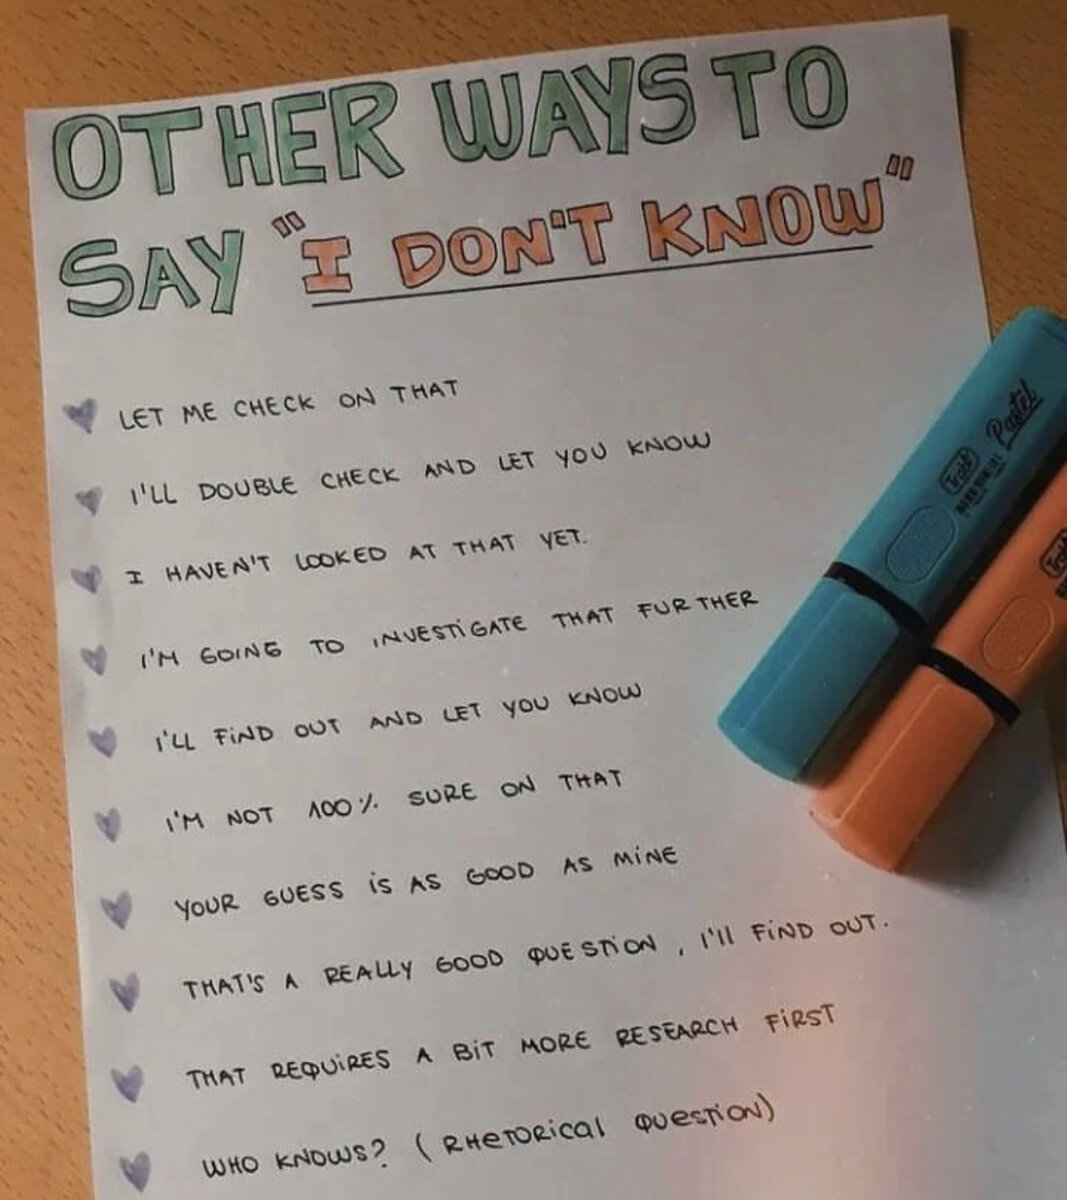 OTHER WAYS TO
SAY "I DON'T KNOW"
LET ME CHECK ON THAT
I'LL DOUBLE CHECK AND LET YOU KNOW
I HAVEN'T LOOKED AT THAT YET.
I'M GOING TO INVESTIGATE THAT FURTHER
I'LL FIND OUT AND LET YOU KNOW
I'M NOT 100% SURE ON THAT
YOUR GUESS IS AS GOOD AS MINE
THAT'S A REALLY GOOD QUESTION, I'll FIND OUT.
THAT REQUIRES A BIT MORE RESEARCH FIRST
WHO KNOWS? (RHETORICAL QUESTION)
Pastel